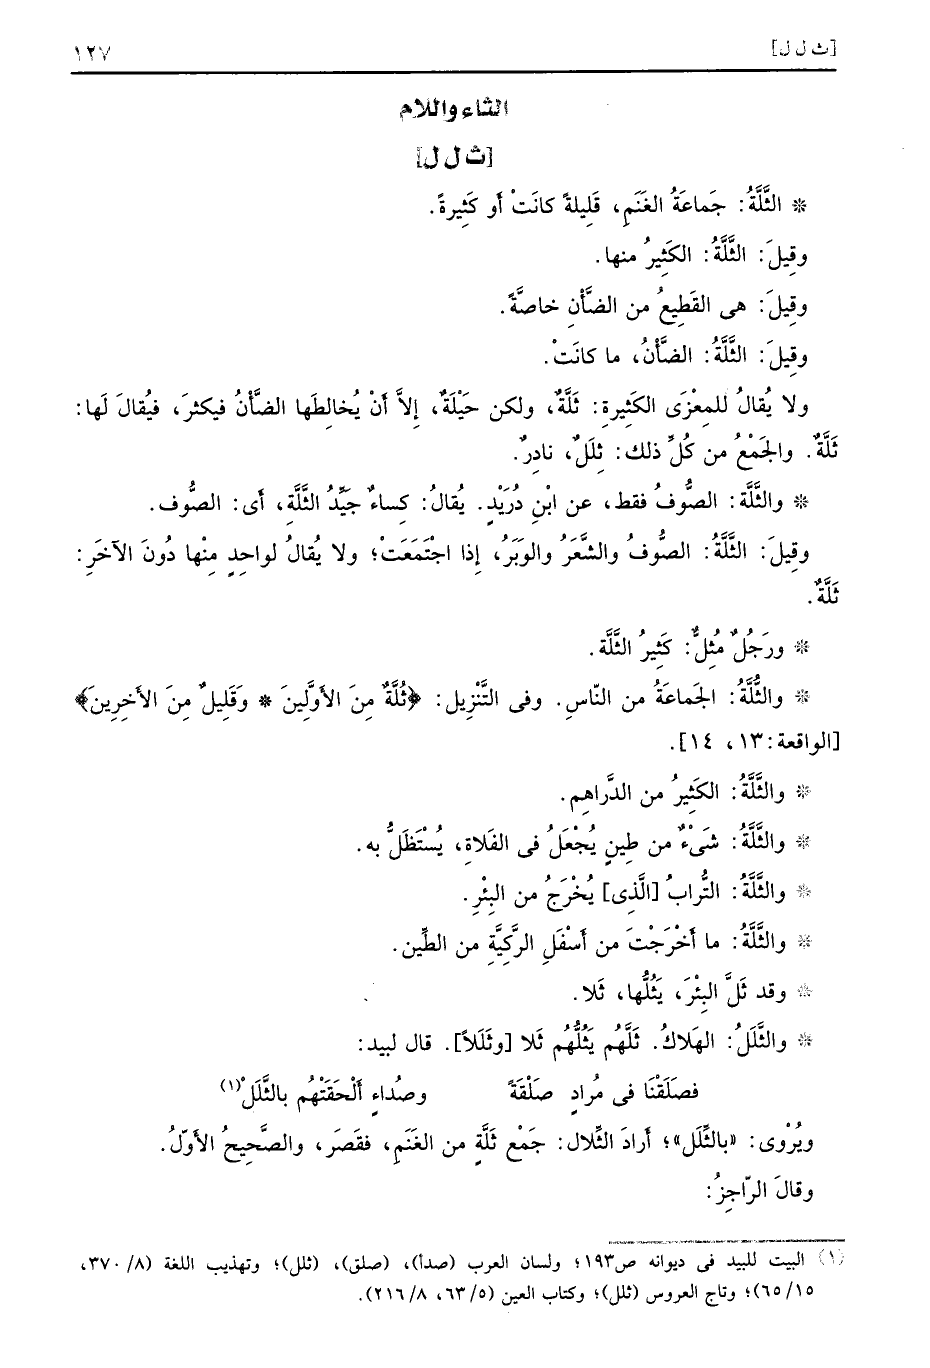 [ث ل ل]
١٢٧
الثاء واللام
[ث ل ل]
* الثَّلَّةُ: جَماعَةُ الغَنَمِ، قَلِيلةً كانَتْ أو كَثِيرةً.
وقِيلَ: الثَّلَّةُ: الكَثِيرُ منها.
وقِيلَ: هى القَطِيعُ من الضَّأْنِ خاصَّةً.
وقِيلَ: الثَّلَّةُ: الضَّأْنُ، ما كانَتْ.
ولا يُقالُ للمِعْزَى الكَثِيرةِ: ثَلَّةٌ، ولكن حَيْلَةٌ، إلاَّ أَنْ يُخالطَها الضَّأْنُ فيكثرَ، فيُقالَ لَها:
ثَلَّةٌ. والجَمْعُ من كُلِّ ذلك: ثِلَلٌ، نادرٌ.
* والثَّلَّة: الصُّوفُ فقط، عن ابْنِ دُرَيْدٍ. يُقالُ: كِساءٌ جَيِّدُ الثَّلَّة، أى: الصُّوف.
وقِيلَ: الثَّلَّةُ: الصُّوفُ والشَّعَرُ والوَبَرُ، إذا اجْتَمَعَتْ؛ ولا يُقالُ لواحِدٍ مِنْها دُونَ الآخَرِ:
ثَلَّةٌ.
* ورَجُلٌ مُثِلٌّ: كَثِيرُ الثَّلَّة.
* والثُّلَّةُ: الجَماعَةُ من النّاسِ. وفى التَّنْزِيل: ﴿ثُلَّةٌ مِنَ الأَوَّلِينَ * وَقَلِيلٌ مِنَ الأَخِرِينَ﴾
[الواقعة: ١٣، ١٤].
* والثُّلَّةُ: الكَثِيرُ من الدَّراهِمِ.
* والثَّلَّةُ: شَىْءٌ من طِينٍ يُجْعَلُ فى الفَلاةِ، يُسْتَظَلُّ به.
* والثَّلَّةُ: التُّرابُ [الَّذى] يُخْرَجُ من البِئْرِ.
* والثَّلَّةُ: ما أَخْرَجْتَ من أَسْفَلِ الرَّكِيَّةِ من الطِّينِ.
* وقد ثَلَّ البِئْرَ، يَثُلُّها، ثَلا.
* والثَّلَلُ: الهَلاكُ. ثَلَّهُم يَثُلُّهُم ثَلا [وثَلَلاً]. قال لبيد:
فصَلَقْنَا فى مُرادٍ صَلْقَةً وصُداءٍ أَلْحَقَتْهُم بالثَّلَلْ(١)
ويُرْوى: «بالثِّلَل»؛ أرادَ الثِّلال: جَمْع ثَلَّةٍ من الغَنَمِ، فقَصَر، والصَّحِيحُ الأوّلُ.
وقالَ الرّاجِزُ:
(١) البيت للبيد فى ديوانه ص١٩٣؛ ولسان العرب (صدأ)، (صلق)، (ثلل)؛ وتهذيب اللغة (٣٧٠/٨،
٦٥/١٥)؛ وتاج العروس (ثلل)؛ وكتاب العين (٦٣/٥، ٢١٦/٨).